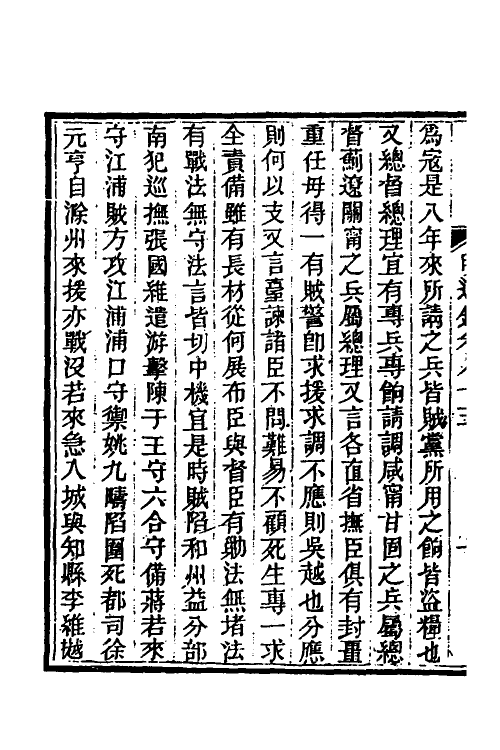 為寇是八年來所請之兵皆賊黨所用之餉皆盜糧也
又總督總理宜有專兵專餉請調咸甯甘固之兵屬總
督薊遼關甯之兵屬總理又言各直省撫臣俱有封疆
重任毋得一有賊警卽求援求調不應則吳越也分應
則何以支又言臺諫諸臣不問難易不顧死生專一求
全責備雖有長材從何展布臣與督臣有勦法無堵法
有戰法無守法言皆切中機宜是時賊陷和州益分部
南犯巡撫張國維遣游擊陳于王守六合守備蔣若來
守江浦賊方攻江浦浦口守禦姚九疇陷圍死都司徐
元亨自滁州來援亦戰沒若來急入城與知縣李維樾